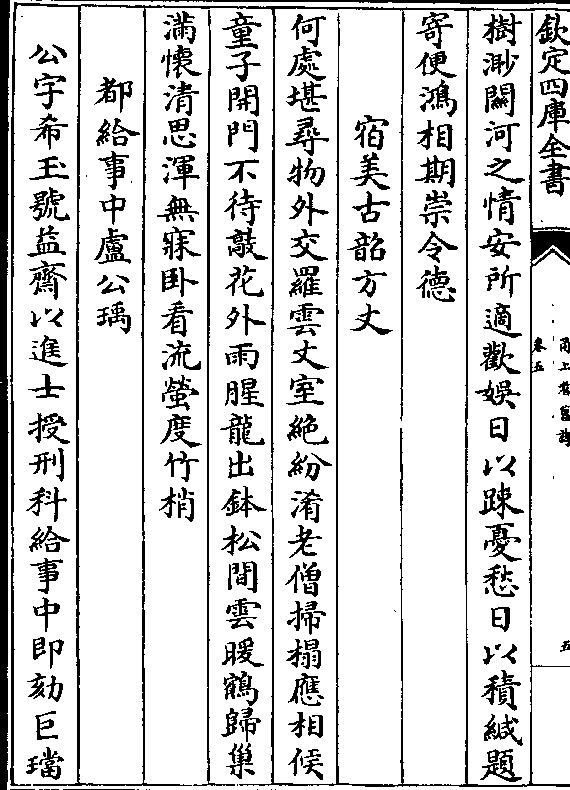 欽定四庫全書
甬上耆舊詩
卷五
五
樹渺關河之情安所適歡娛日以踈憂愁日以積緘題
寄便鴻相期崇令德
宿美古韶方丈
何處堪尋物外交羅雲丈室絶紛淆老僧掃榻應相候
童子開門不待敲花外雨腥龍出鉢松間雲暖鶴歸巢
滿懷清思渾無寐卧看流螢度竹梢
都給事中盧公瑀
公字希玉號益齋以進士授刑科給事中即劾巨璫